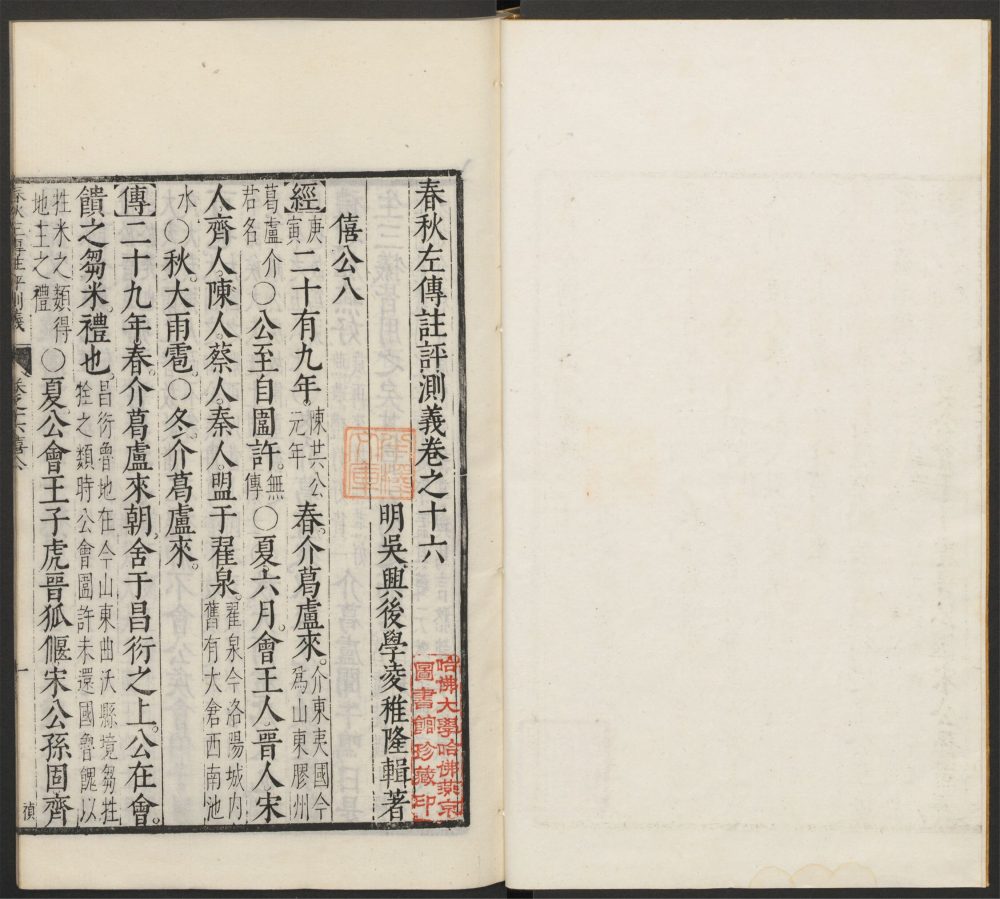 春秋左傳註評測義卷之十六
明吳興後學凌稚隆輯著
僖公八
經庚寅二十有九年陳共公元年春介葛盧來介東夷國今爲山東膠州
葛盧介君名〇公至自圍許無傳〇夏六月會王人晉人宋
人齊人陳人蔡人秦人盟于翟泉翟泉今洛陽城內舊有大倉西南池
水〇秋大雨雹〇冬介葛盧來
傳二十九年春介葛盧來朝舍于昌衍之上公在會
饋之芻米禮也昌衍魯地在今山東曲沃縣境芻牲牷之類時公會圍許未還國魯餽以
牲米之類得地主之禮〇夏公會王子虎晉狐偃宋公孫固齊
哈佛大學哈佛燕京圖書館珍藏印